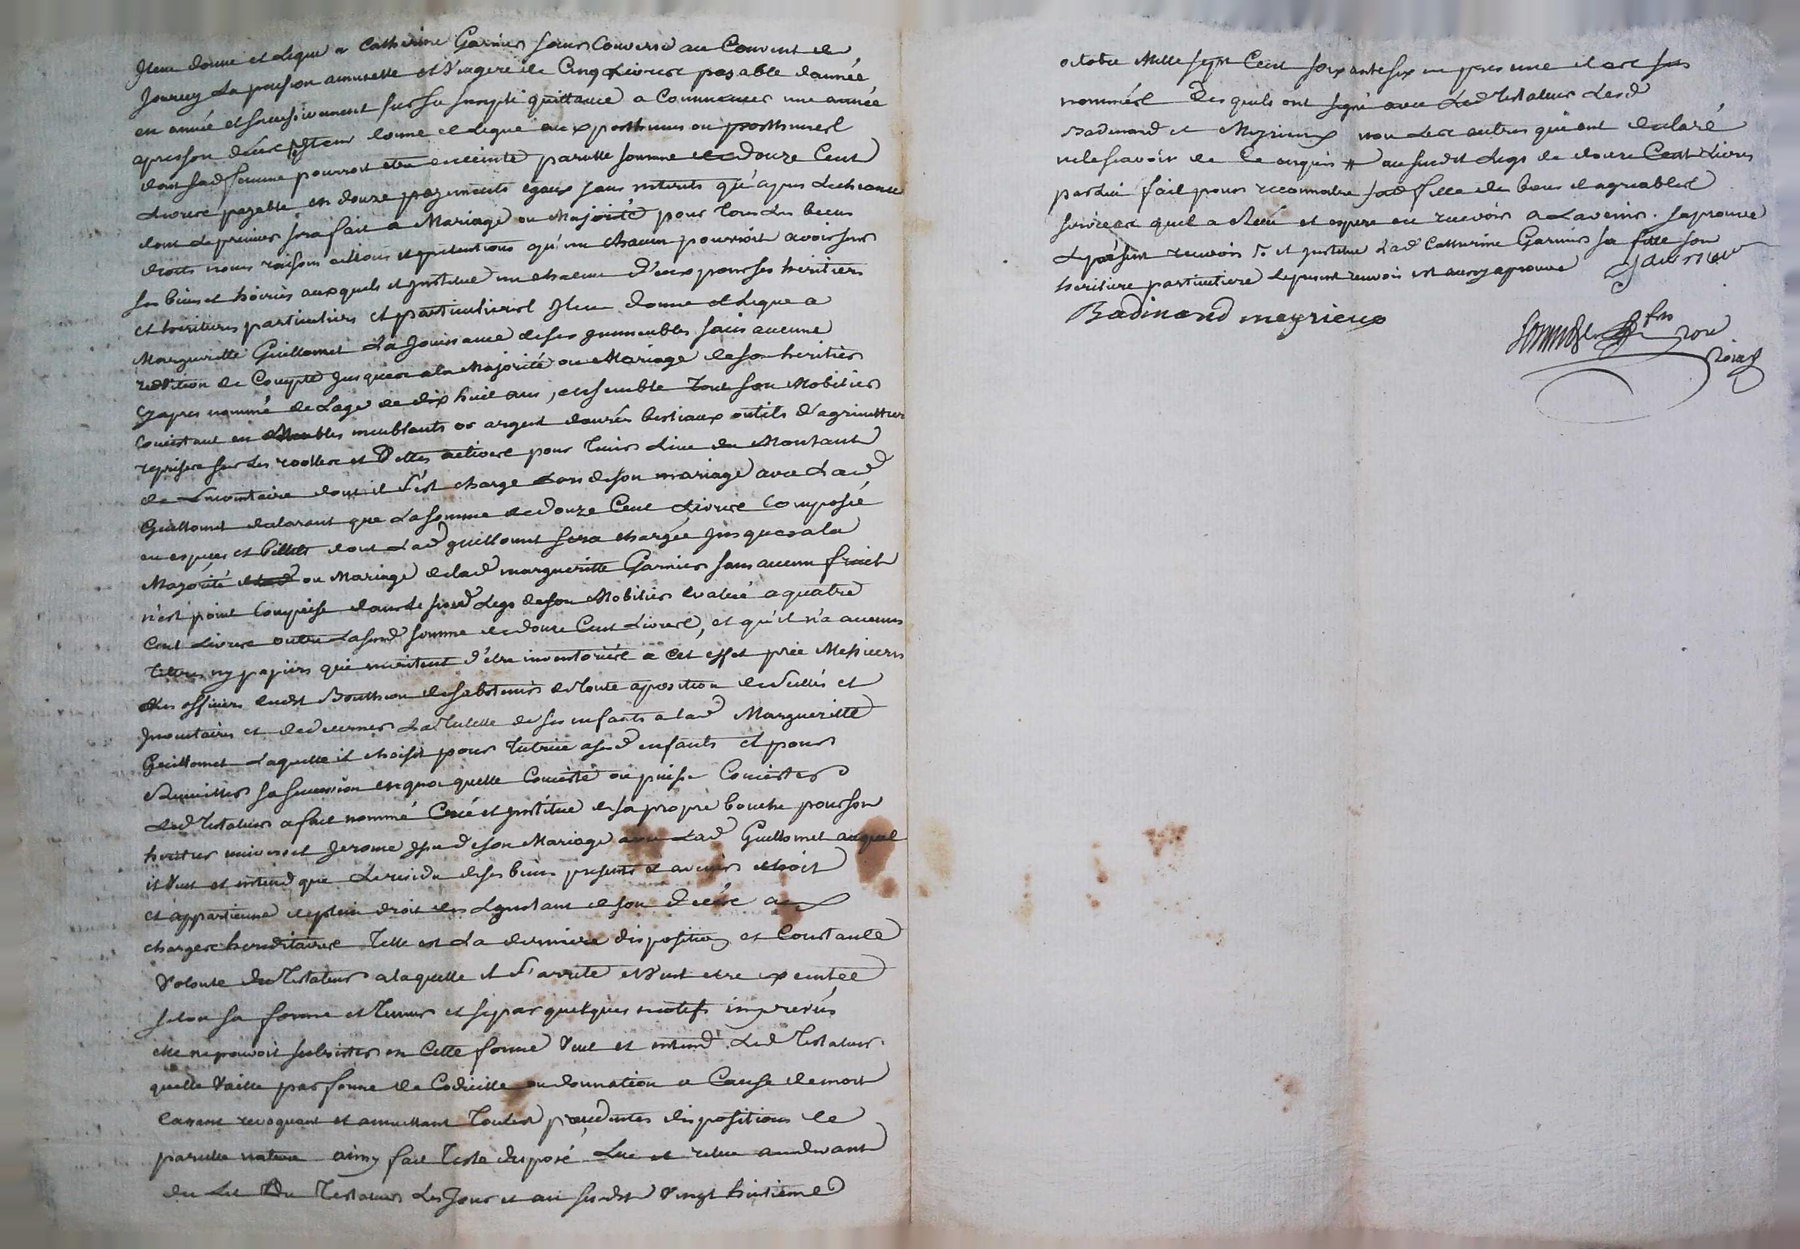 Item donne et legue a Catherine Garnier sœur Converse au Couvent de
Joursey La pension annuelle et Viagere de Cinq Livres payable d'année
en année et successivement sur sa simple quittance a Commencer une année
apres son décès Item donne et legue aux posthumes ou posthumes
dont sad femme pourroit etre enceinte pareille somme de douze Cent
Livres payable en douze payements egaux sans interets qu'apres Lecheance
dont le premier sera fait a Mariage ou Majorité pour tous Les biens
droits noms raisons actions et pretentions qu'un chacun pourroit avoir sur
ses biens et hoiries auxquels et institue un chacun d'eux pour ses heritiers
et heritieres particuliers et particulieres Item donne et legue a
Margueritte Guillomet La Jouissance de ses immeubles sans aucune
redition de Compte Jusques a la Majorité ou Mariage de son heritier
cy apres nommé de Lage de dix huit ans, ensemble tout son Mobilier
Consistant en Meubles meublants or argent danrées bestiaux outils d'agriculture
reprises sur Les et Dettes actives pour tenir Lieu du Montant
de Linventaire dont il s'est chargé Lors de son mariage avec Lad
Guillomet declarant que La somme de douze Cent Livres Composée
en especes et billets dont Lad guillomet sera chargée Jusques a la
Majorité ou Mariage de lad margueritte Garnier sans aucun
n'est point Comprise dans le susd Legs de son Mobilier evalué a quatre
Cent Livres outre La susd somme de douze Cent Livres, et qu'il n'a aucuns
titres ny papiers qui meritent d'être inventoriés a cet effet prie Messieurs
Les officiers dudit Boutheon de s'abstenir de toute aposition de scellés et
Inventaires et de decerner La Tutelle de ses enfants a lad Margueritte
Guillomet Laquelle il choisit pour tutrice a sesd enfants et pour
Recueillir sa succession en quoi quelle Consiste ou puisse Consister
Led Testateur a fait nommé Créé et institue de sa propre bouche pour son
heritier universel Jerome issu de son Mariage avec Lad Guillomet auquel
il veut et entend que Le residu de ses biens presents et avenir echoit
et appartienne de plein droit des Linstant de son décès aux
charges hereditaires Telle est La derniere disposition et Constante
Volonté du Testateur a laquelle il s'arrete et veut etre executée
selon sa forme et teneur et si par quelques motifs imprevûs
elle ne pouvoit subsister en Cette forme Veut et entend Led Testateur
quelle Vaille par forme de Codicille ou donnation a Cause de mort
Cassant revoquant et annullant Toutes precedentes dispositions de
pareille nature ainsy fait Testé disposé Lu et relu au devant
du Lit du Testateur Les Jour et an susdit Vingt huitieme
octobre Mille sept Cent soixante six en presence des sus
nommés Lesquels ont signé avec Led Testateur Lesd
Badinand et Meyrieux non Les autres qui ont declaré
ne le scavoir de Ce enquis # au susdit Legs de douze Cent Livres
par lui fait pour reconnaitre sad fille des bons et agreables
services quel a Reçu et espere en recevoir a Lavenir. Japrouve
Le présent renvoi et institue Lad Catherine Garnier sa fille son
heritiere particuliere Le present renvoi est aussy aprouvé Garnier
Badinand meyrieux